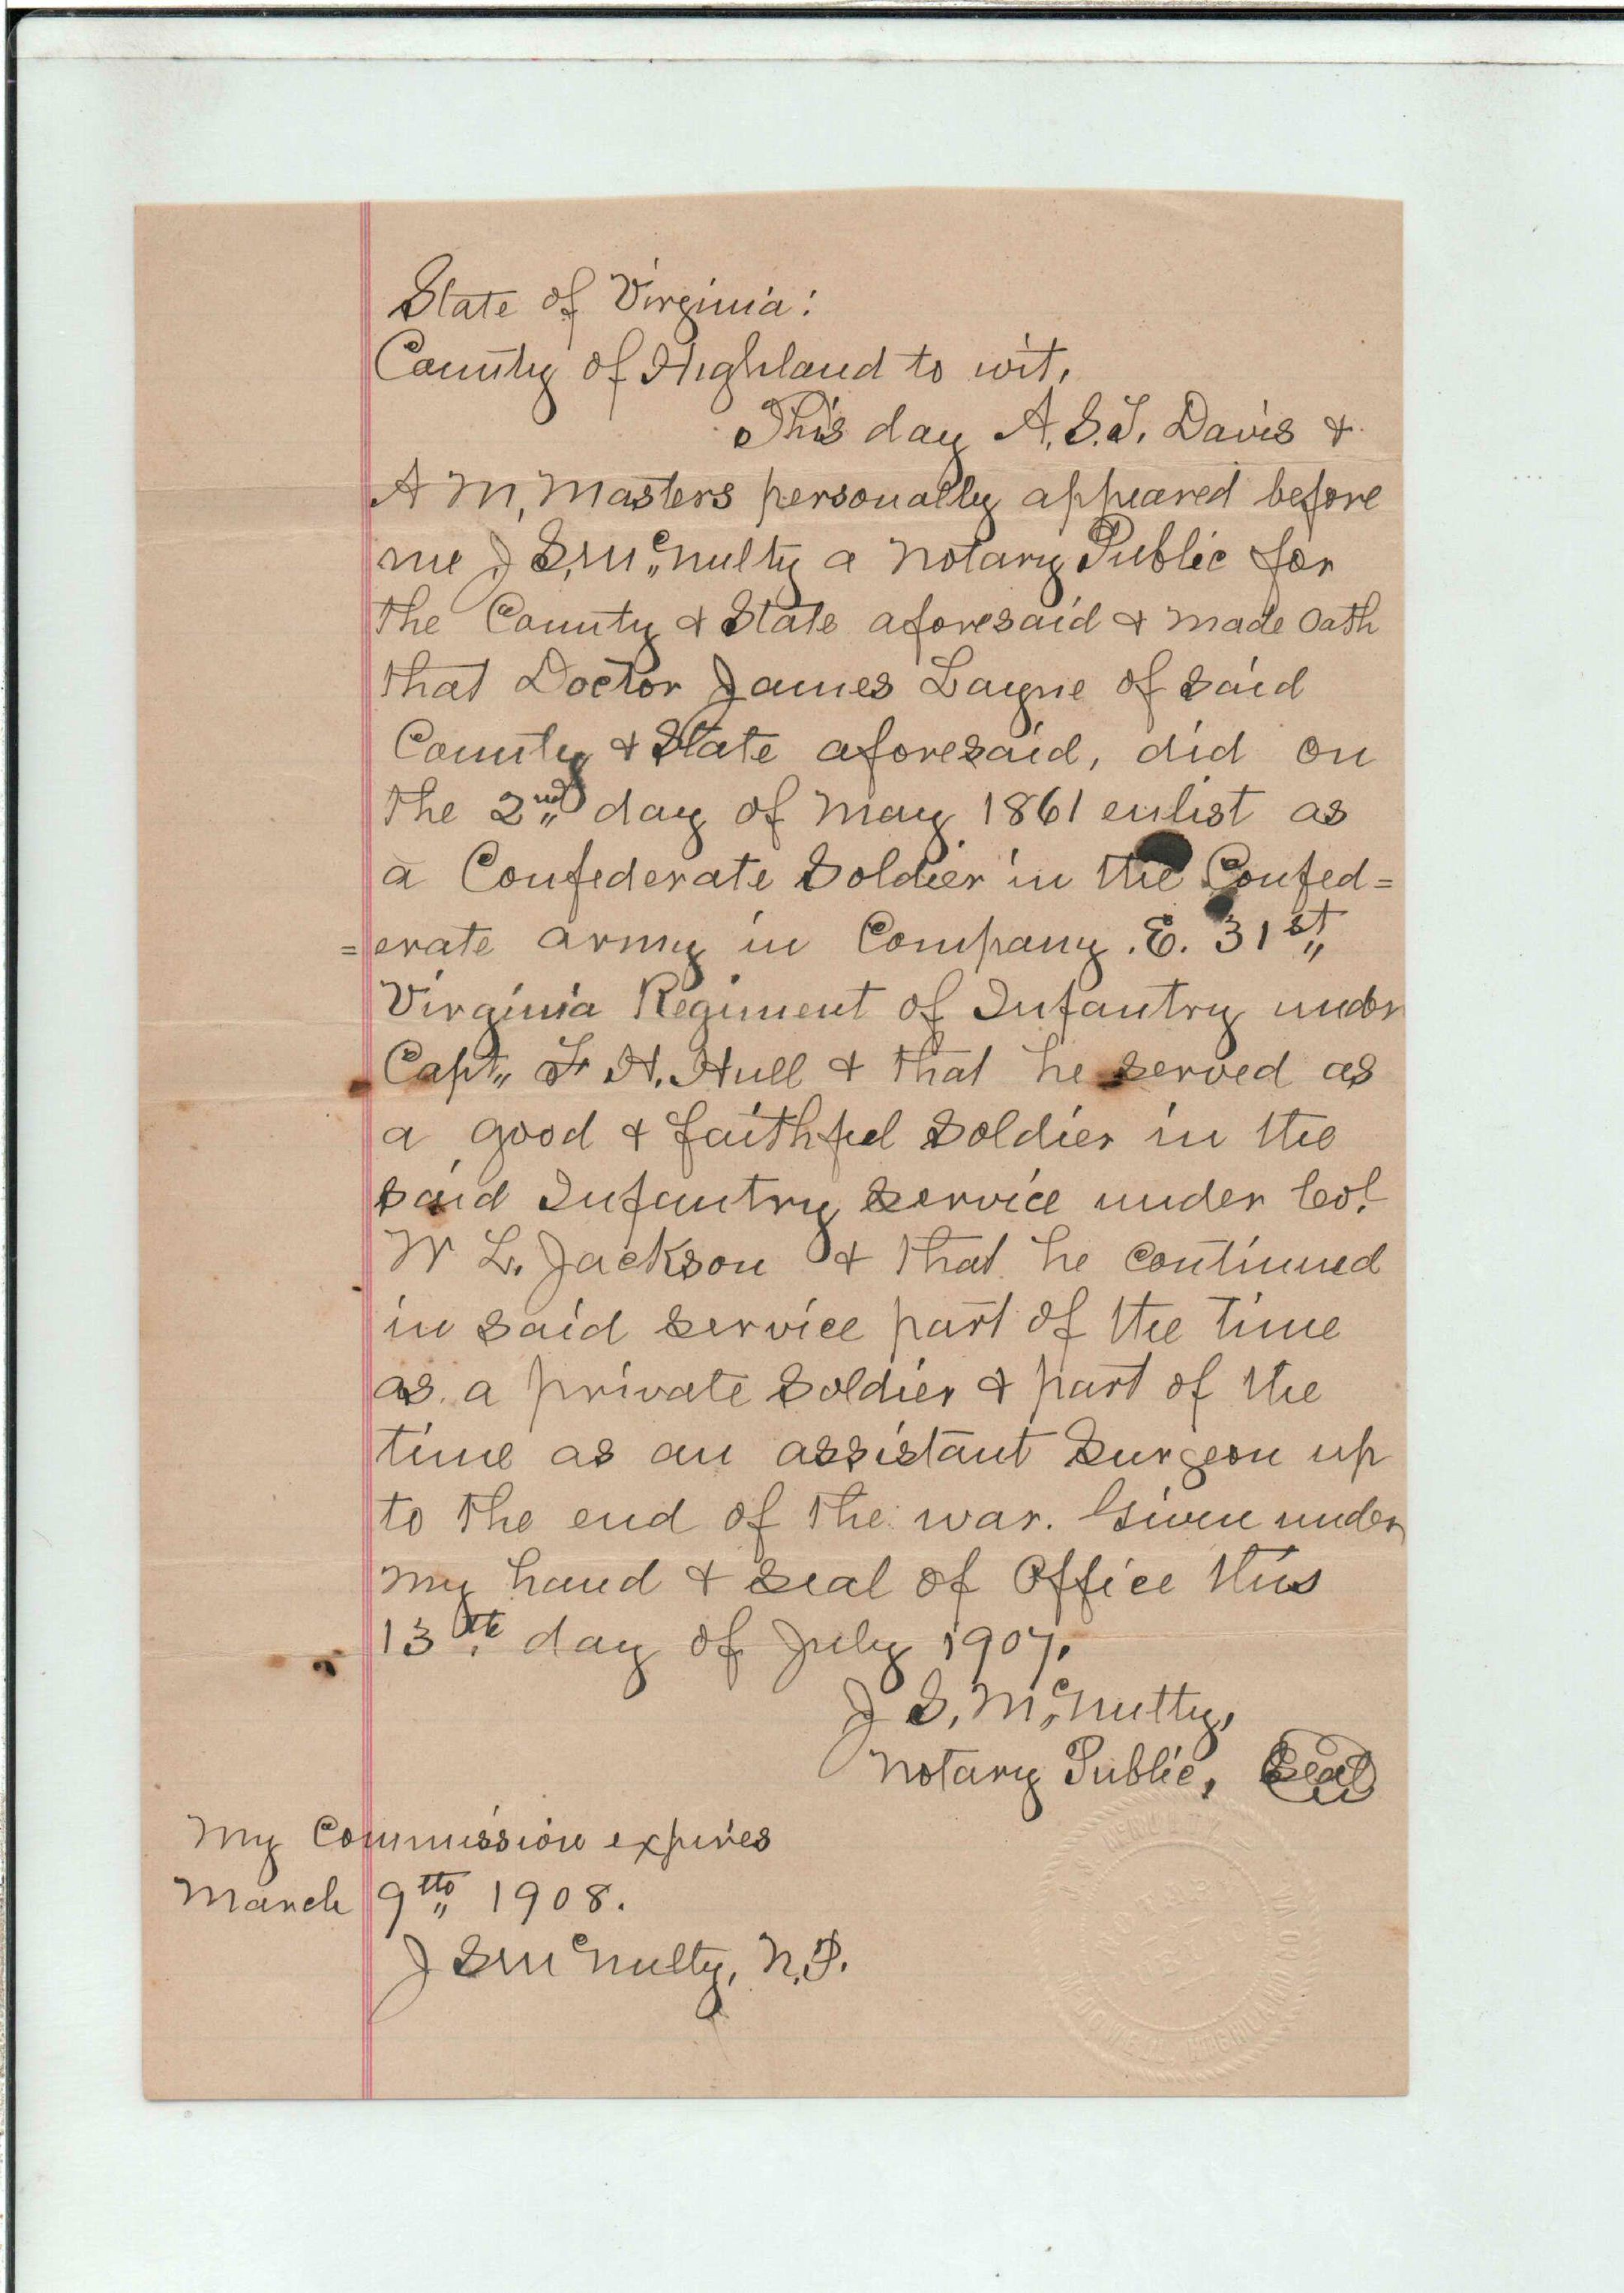 State of Virginia:
County of Highland to wit,
This day A. S. T. Davis &
A M, Masters personally appeared before
me J S. Mc,,nulty a Notary Public for
the County & State aforesaid & made oath
that Doctor James Layne of said
County & State aforesaid, did on
the 2nd,, day of May 1861 enlist as
a Confederate Soldier in the Confed=
=erate army in Company .E. 31st,,
Virginia Regiment of Infantry under
Capt,, F H. Hull & that he served as
a good & faithful Soldier in the
said Infantry service under Col.
W L. Jackson & that he continued
in said service part of the time
as a private Soldier & part of the
time as an assistant Surgeon up
to the end of the war. Given under
my hand & seal of Office this
13th day of July 1907.
J S. Mc,nulty,
Notary Public, Seal
My Commission expires
March 9th,, 1908.
J S Mcnulty, N.P.
NOTARY
McDOWELL, HIGHLAND